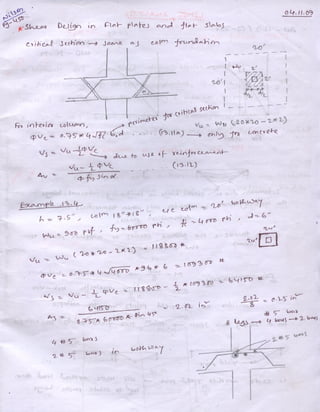 04.11.09
Nilson
Pg-450
* Shear Design in Flat plates and flat slabs
Critical section → same as colm foundation
20'
20'
2'
For interior column,
perimeter for critical section
Vu = Wu (20×20 - 2×2)
φVc = 0.75 × 4√f'c bod (13.11a) → only for concrete
Vs = Vu - ½φVc → due to use of reinforcement
Av = Vu - ½φVc / φ fy sinα (13.12)
Example 13.4
h = 7.5", colm 18"×18" c/c colm = 20' bothway
Wu = 300 psf, fy = 60000 psi, f'c = 4000 psi, d = 6"
Vu = Wu (20×20 - 2×2) = 118800 #
24"
24"
φVc = 0.75 × 4 √4000 × 96 × 6 = 109300 #
Vs = Vu - ½ φVc = 118800 - ½ × 109300 = 64150 #
Av = 64150 / 0.75 × 60000 × sin 45 = 2.02 in²
2.02 / 8 = 0.25 in²
# 5 bars
8 legs → 4 bars → 2 bars
4 # 5 bars
2 # 5 bars in bothway
2 # 5 bars